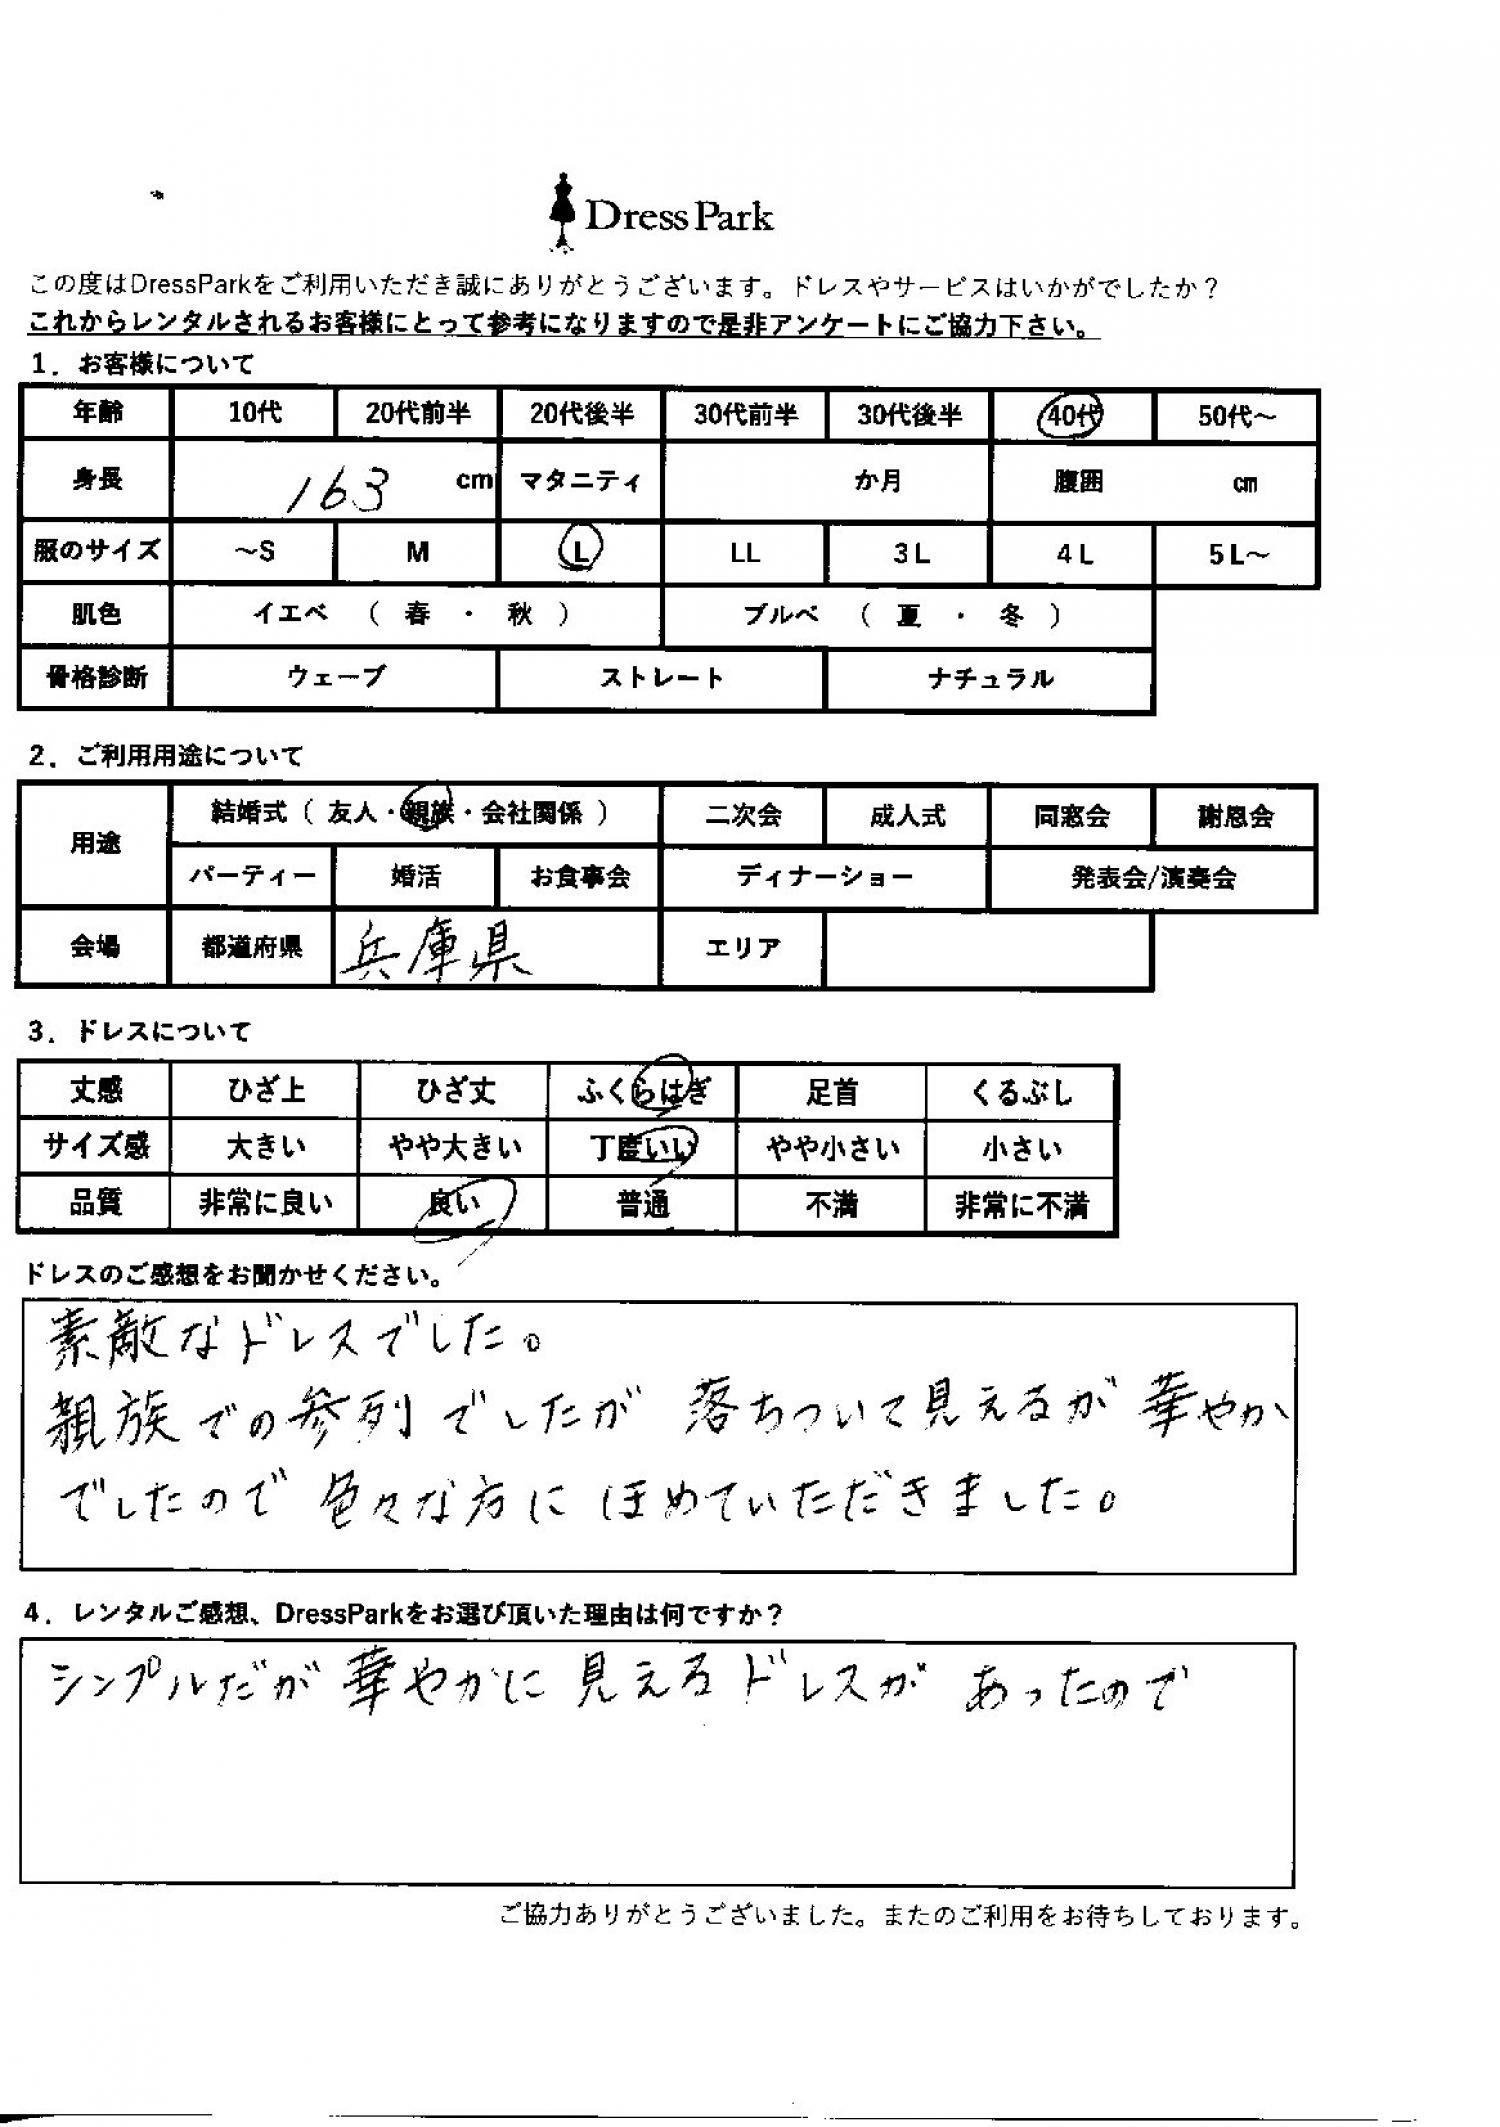 Dress Park
この度はDressParkをご利用いただき誠にありがとうございます。ドレスやサービスはいかがでしたか？
これからレンタルされるお客様にとって参考になりますので是非アンケートにご協力下さい。
1．お客様について
年齢 10代 20代前半 20代後半 30代前半 30代後半 40代 50代～
身長 163 cm マタニティ か月 腹囲 ㎝
服のサイズ ～S M L LL 3L 4L 5L～
肌色 イエベ （ 春 ・ 秋 ） ブルベ （ 夏 ・ 冬 ）
骨格診断 ウェーブ ストレート ナチュラル
2．ご利用用途について
用途 結婚式（ 友人・親族・会社関係 ） 二次会 成人式 同窓会 謝恩会
パーティー 婚活 お食事会 ディナーショー 発表会/演奏会
会場 都道府県 兵庫県 エリア
3．ドレスについて
丈感 ひざ上 ひざ丈 ふくらはぎ 足首 くるぶし
サイズ感 大きい やや大きい 丁度いい やや小さい 小さい
品質 非常に良い 良い 普通 不満 非常に不満
ドレスのご感想をお聞かせください。
素敵なドレスでした。
親族での参列でしたが 落ちついて見えるが 華やか
でしたので 色々な方に ほめていただきました。
4．レンタルご感想、DressParkをお選び頂いた理由は何ですか？
シンプルだが 華やかに 見えるドレスが あったので
ご協力ありがとうございました。またのご利用をお待ちしております。